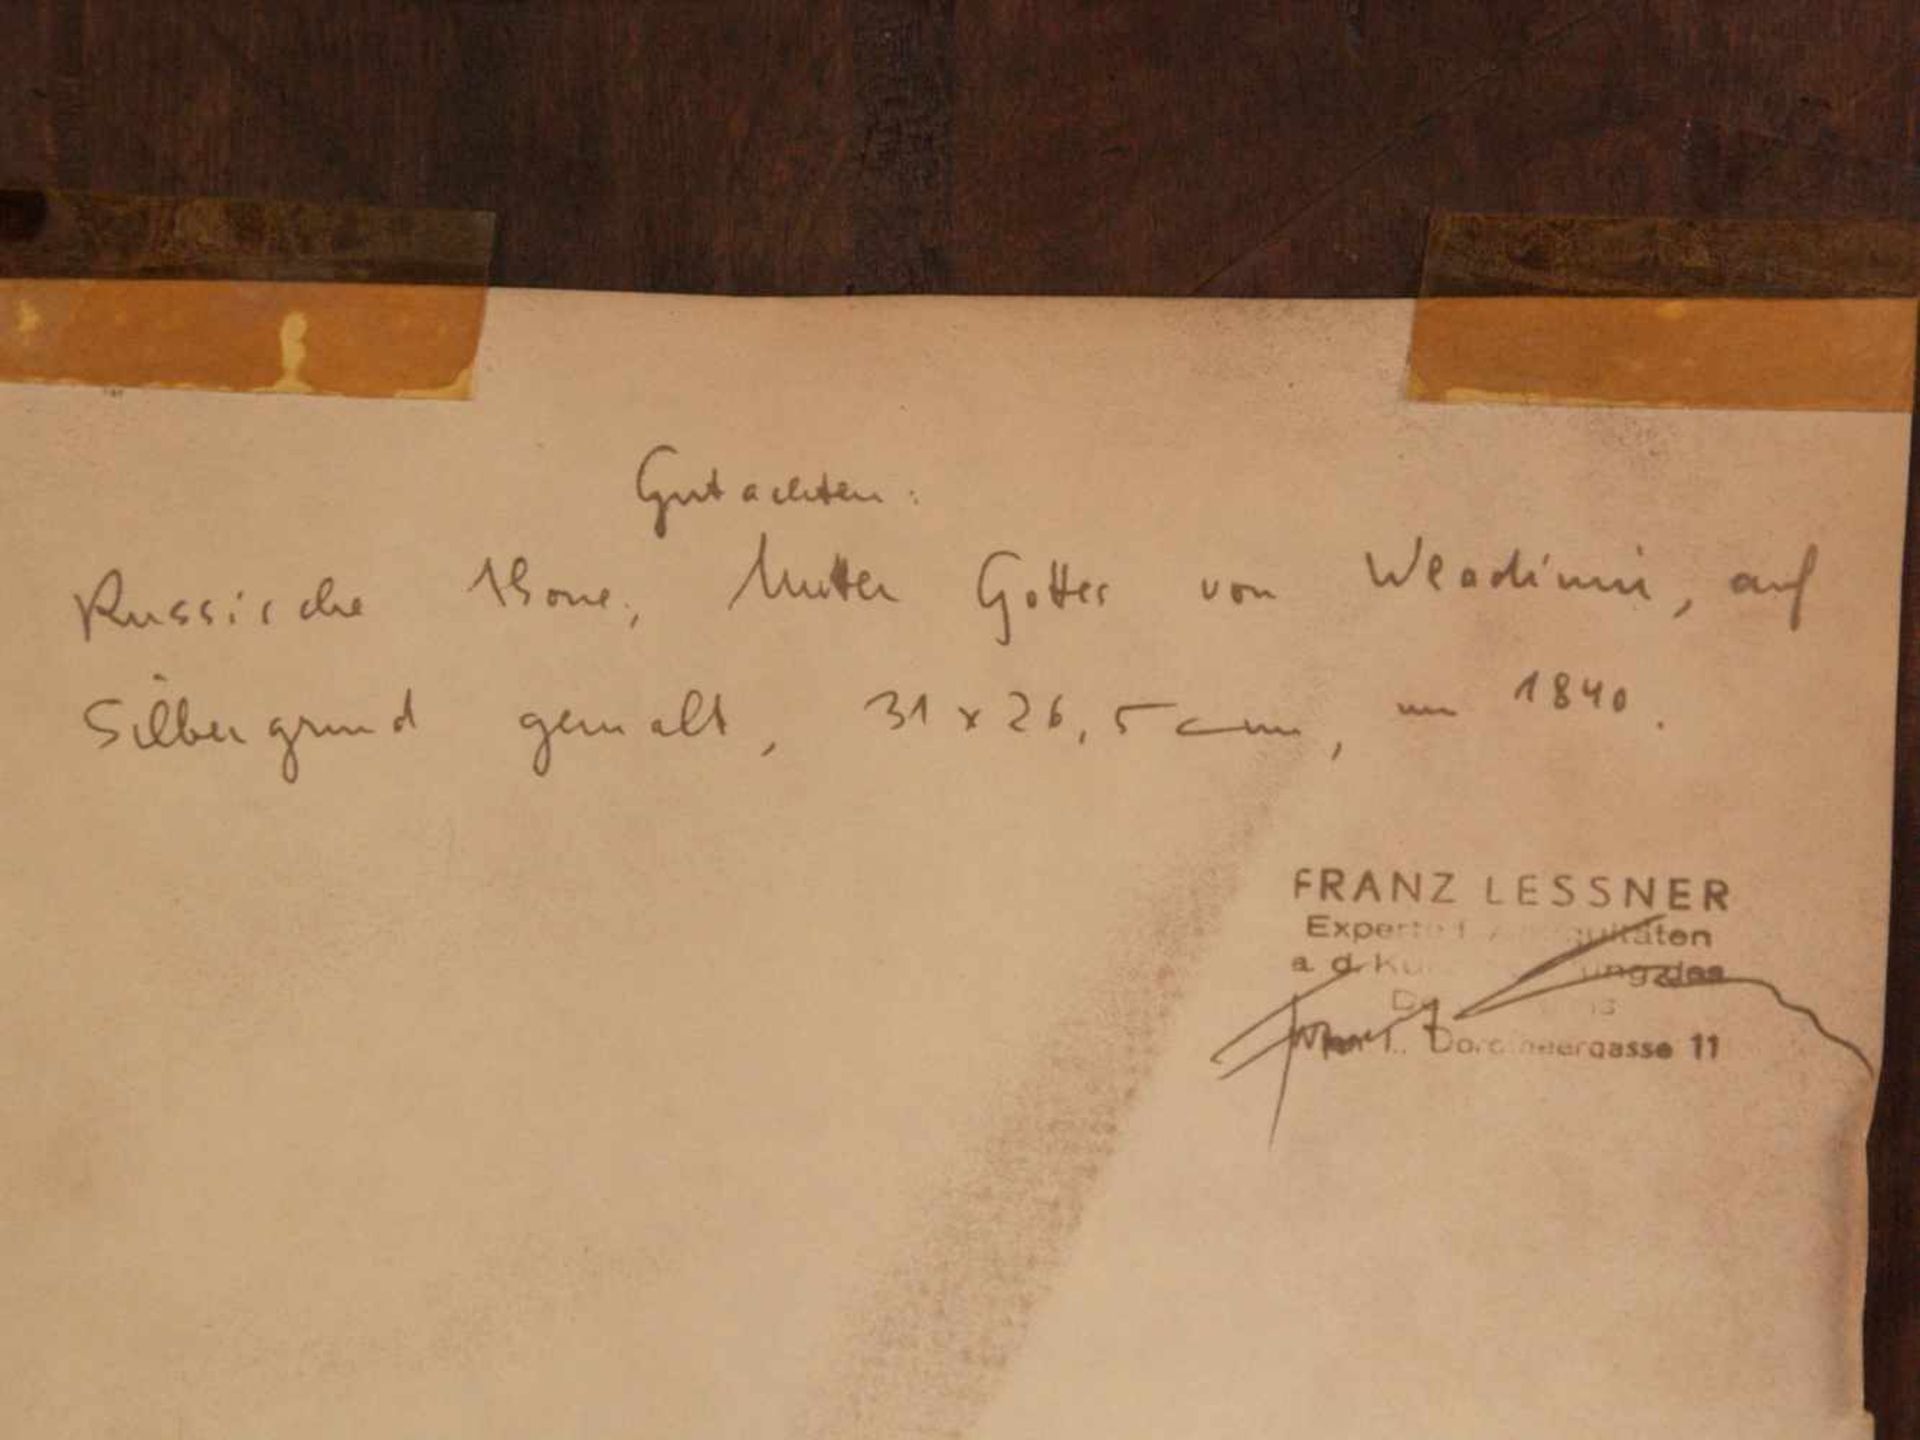 Gutachten:
Russische Ikone, Mutter Gottes von Wladimir, auf
Silbergrund gemalt, 31 x 26,5 cm, um 1840.
FRANZ LESSNER
Experte f. Antiquitäten
a. d. des
Dorotheergasse 11